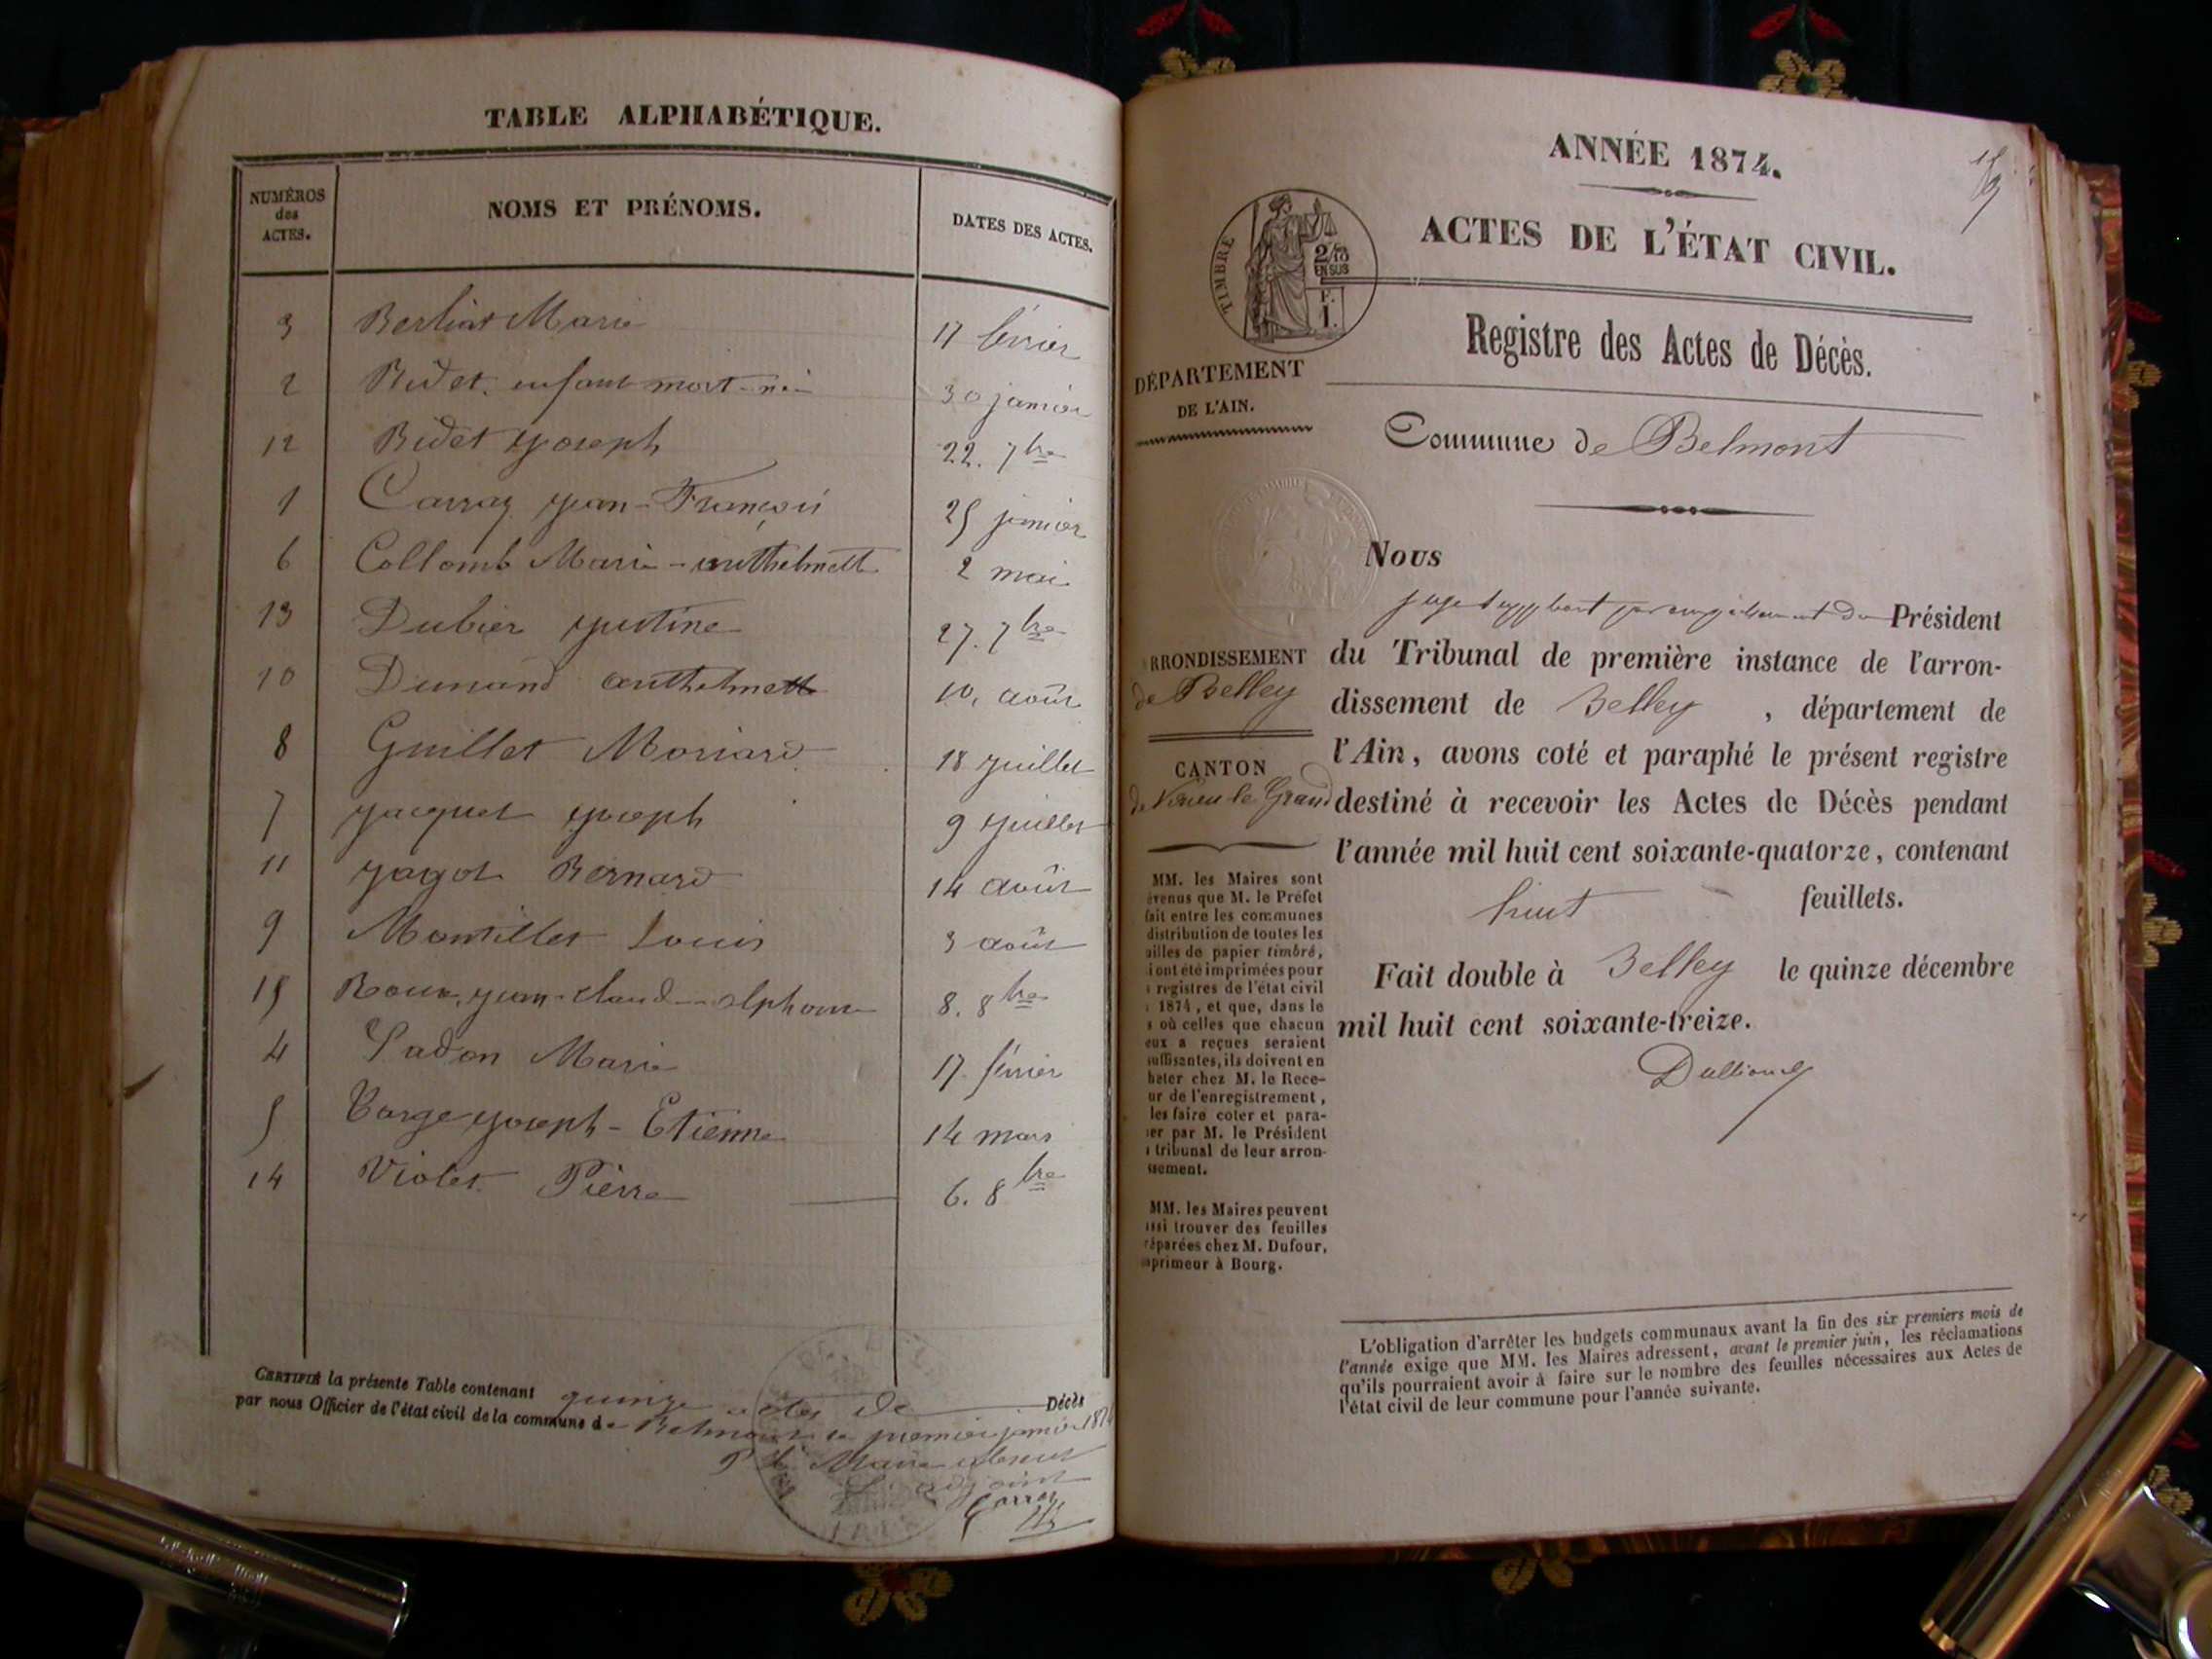 TABLE ALPHABÉTIQUE.
NUMÉROS des ACTES.
NOMS ET PRÉNOMS.
DATES DES ACTES.
3 Berliat Marie 17 février
2 Bidet enfant mort-né 30 janvier
12 Bidet Joseph 22. 7bre
1 Carray Jean-François 25 janvier
6 Collomb Marie-anthelmette 2 mai
13 Dubier Justine 27. 7bre
10 Dunand anthelmette 10. août
8 Guillet Moriard 18 Juillet
7 Jacquet Joseph 9 Juillet
11 Jagot Bernard 14 août
9 Montillet Louis 3 août
15 Roux Jean-Claude alphonse 8. 8bre
4 Sadon Marie 17. février
5 Varge Joseph-Etienne 14 mars
14 Violet Pierre 6. 8bre
CERTIFIÉ la présente Table contenant quinze actes de Décès
par nous Officier de l'état civil de la commune de Belmont le premier janvier 1874
Pr le Maire absent
L'adjoint
Carray
15
ANNÉE 1874.
ACTES DE L'ÉTAT CIVIL.
TIMBRE
2/10
EN SUS
F.
1.
Registre des Actes de Décès.
DÉPARTEMENT
DE L'AIN.
Commune de Belmont
Nous
juge suppléant par empêchement du Président
du Tribunal de première instance de l'arron-
dissement de Belley, département de
l'Ain, avons coté et paraphé le présent registre
destiné à recevoir les Actes de Décès pendant
l'année mil huit cent soixante-quatorze, contenant
huit feuillets.
Fait double à Belley le quinze décembre
mil huit cent soixante-treize.
RRONDISSEMENT
de Belley
CANTON
de Virieu le Grand
MM. les Maires sont
évenus que M. le Préfet
fait entre les communes
distribution de toutes les
uilles de papier timbré,
i ont été imprimées pour
s registres de l'état civil
1874, et que, dans le
s où celles que chacun
eux a reçues seraient
suffisantes, ils doivent en
heter chez M. le Rece-
ur de l'enregistrement,
les faire coter et para-
er par M. le Président
tribunal de leur arron-
ssement.
MM. les Maires peuvent
ssi trouver des feuilles
réparées chez M. Dufour,
mprimeur à Bourg.
L'obligation d'arrêter les budgets communaux avant la fin des six premiers mois de
l'année exige que MM. les Maires adressent, avant le premier juin, les réclamations
qu'ils pourraient avoir à faire sur le nombre des feuilles nécessaires aux Actes de
l'état civil de leur commune pour l'année suivante.